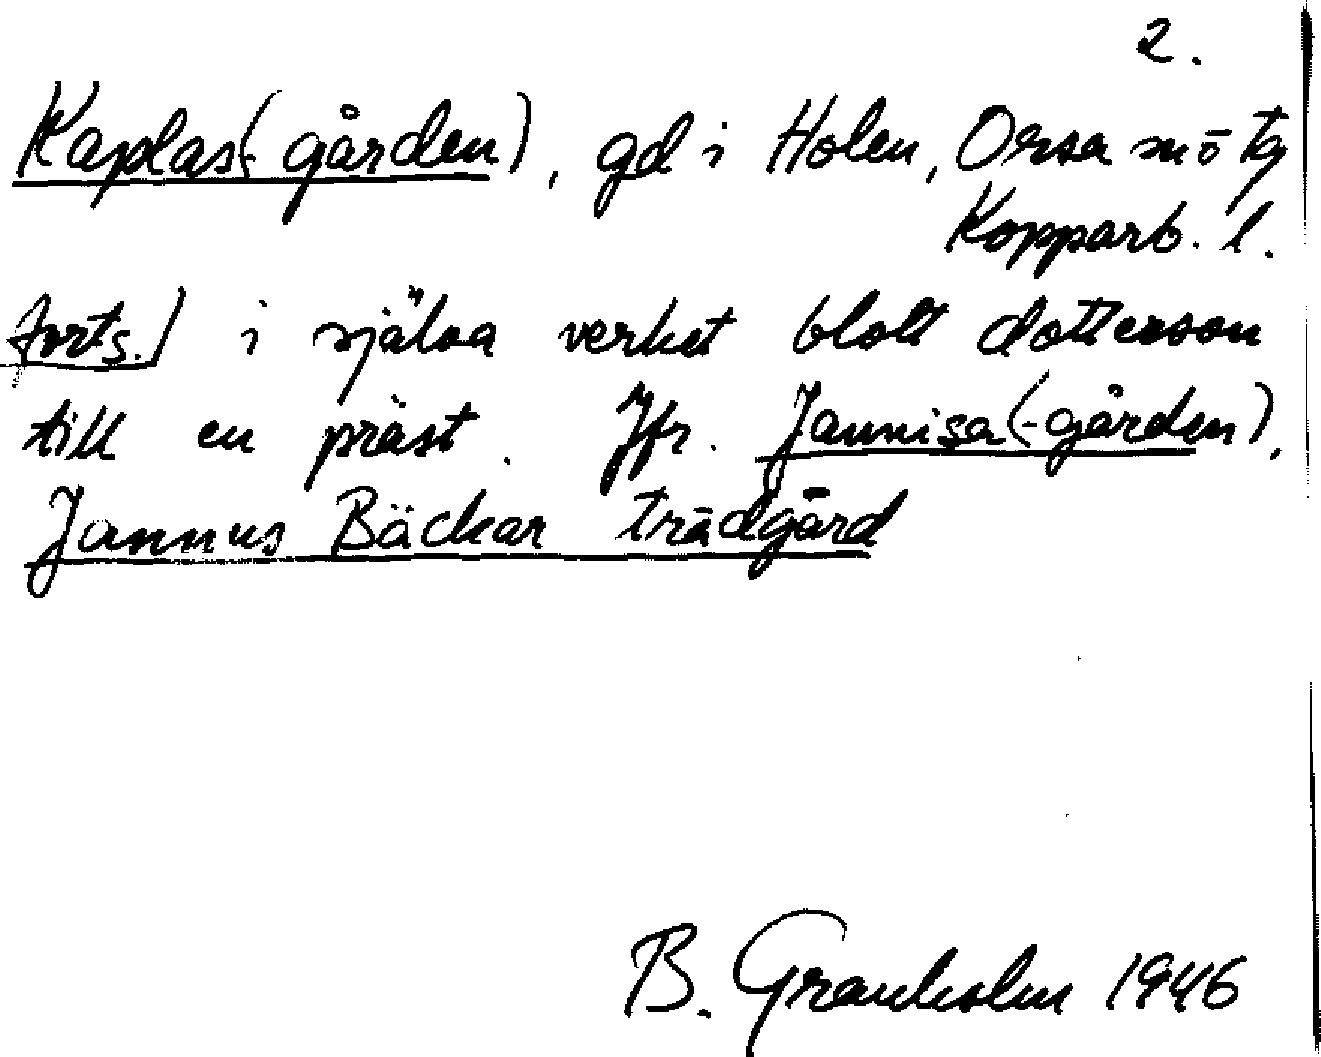 2.
Kaplas(-gården), gd i Holen, Orsa sn o tg
Kopparb. l.
forts.) i själva verket blott dotterson
till en präst. Jfr. Jannisa(-gården),
Jannus Bäckar trädgård
B. Granholm 1946